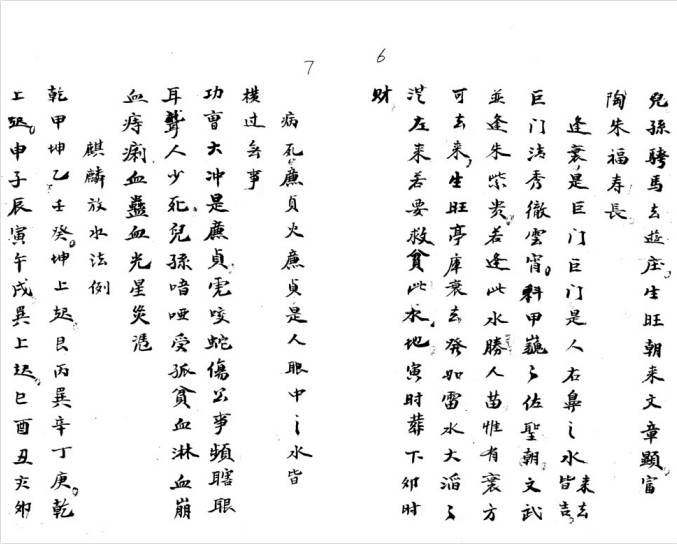 6
兒孫騎馬去遊庄。生旺朝来文章顯富
陶朱福寿長
逢衰是巨门巨门是人右鼻之水皆来去吉
巨门清秀徹雲宵。科甲巍々佐聖朝。文武
並逢朱紫贵。若逢此水勝人苗惟有衰方
可去来。生旺亭庫衰去發如雷水大滔々
從左来若要救貧此水。地寅时葬下卯时
财
7
病死廉貞火廉貞是人眼中之水皆
横过無事
功曹大冲是廉貞。虎咬蛇傷公事頻瞎眼
耳聾人少死。兒孫喑哑受孤貧血淋血崩
血痔痢血蠱血光星災凴
麒麟放水法例
乾甲坤乙壬癸。坤上起艮丙巽辛丁庚。乾
上起。申子辰寅午戌巽上起。巳酉丑亥卯